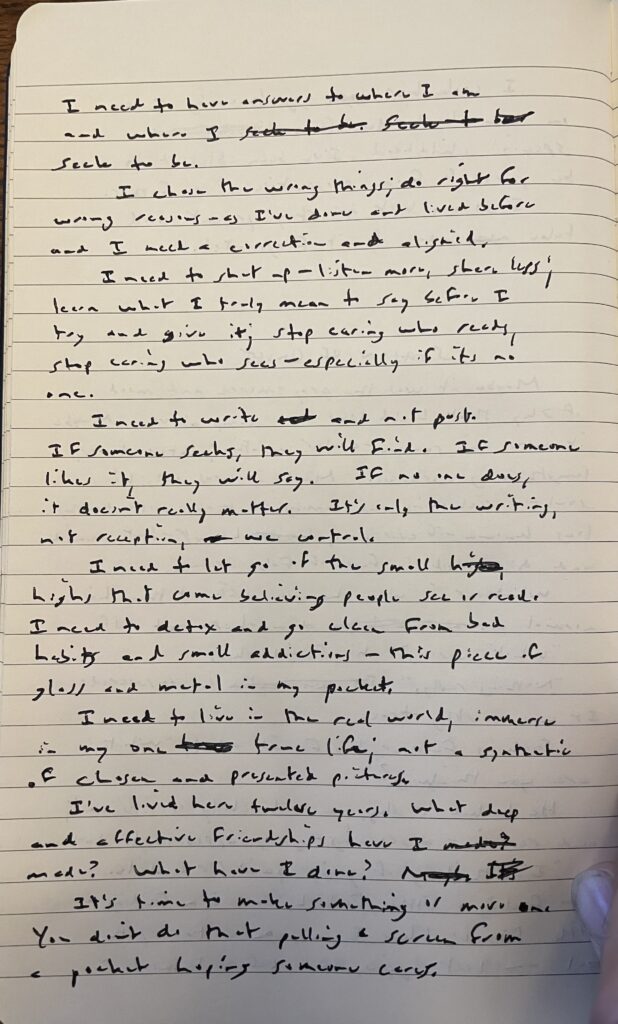 I need to have answers to where I am
and where I seek to be. seek to be
seek to be.
I chose the wrong things; do right for
wrong reasons - as I've done and lived before
and I need a correction and aligned.
I need to shut up - listen more, share less;
learn what I truly mean to say before I
try and give it; stop caring who reads,
stop caring who sees - especially if its no
one.
I need to write and not post.
If someone seeks, they will find. If someone
likes it, they will say. If no one does,
it doesn't really matter. It's only the writing,
not reception, we control.
I need to let go of the small
highs that come believing people see or read.
I need to detox and go clean from bad
habits and small addictions - this piece of
glass and metal in my pocket.
I need to live in the real world, immerse
in my one true life; not a synthetic
of chosen and presented pictures.
I've lived here twelve years. What deep
and effective friendships have I made?
made? What have I done? Maybe It's
It's time to make something or move on
You don't do that pulling a screen from
a pocket hoping someone cares.